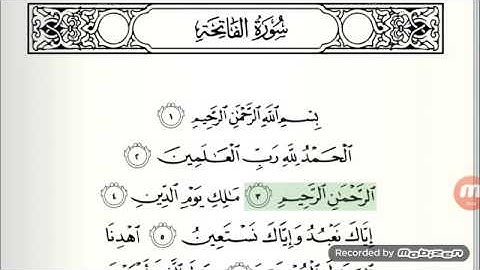 سُورَةُ الفَاتِحَةِ
بِسْمِ ٱللَّهِ ٱلرَّحْمَٰنِ ٱلرَّحِيمِ ١
ٱلْحَمْدُ لِلَّهِ رَبِّ ٱلْعَالَمِينَ ٢
ٱلرَّحْمَٰنِ ٱلرَّحِيمِ ٣ مَالِكِ يَوْمِ ٱلدِّينِ ٤
إِيَّاكَ نَعْبُدُ وَإِيَّاكَ نَسْتَعِينُ ٥ ٱهْدِنَا
Recorded by Mobizen